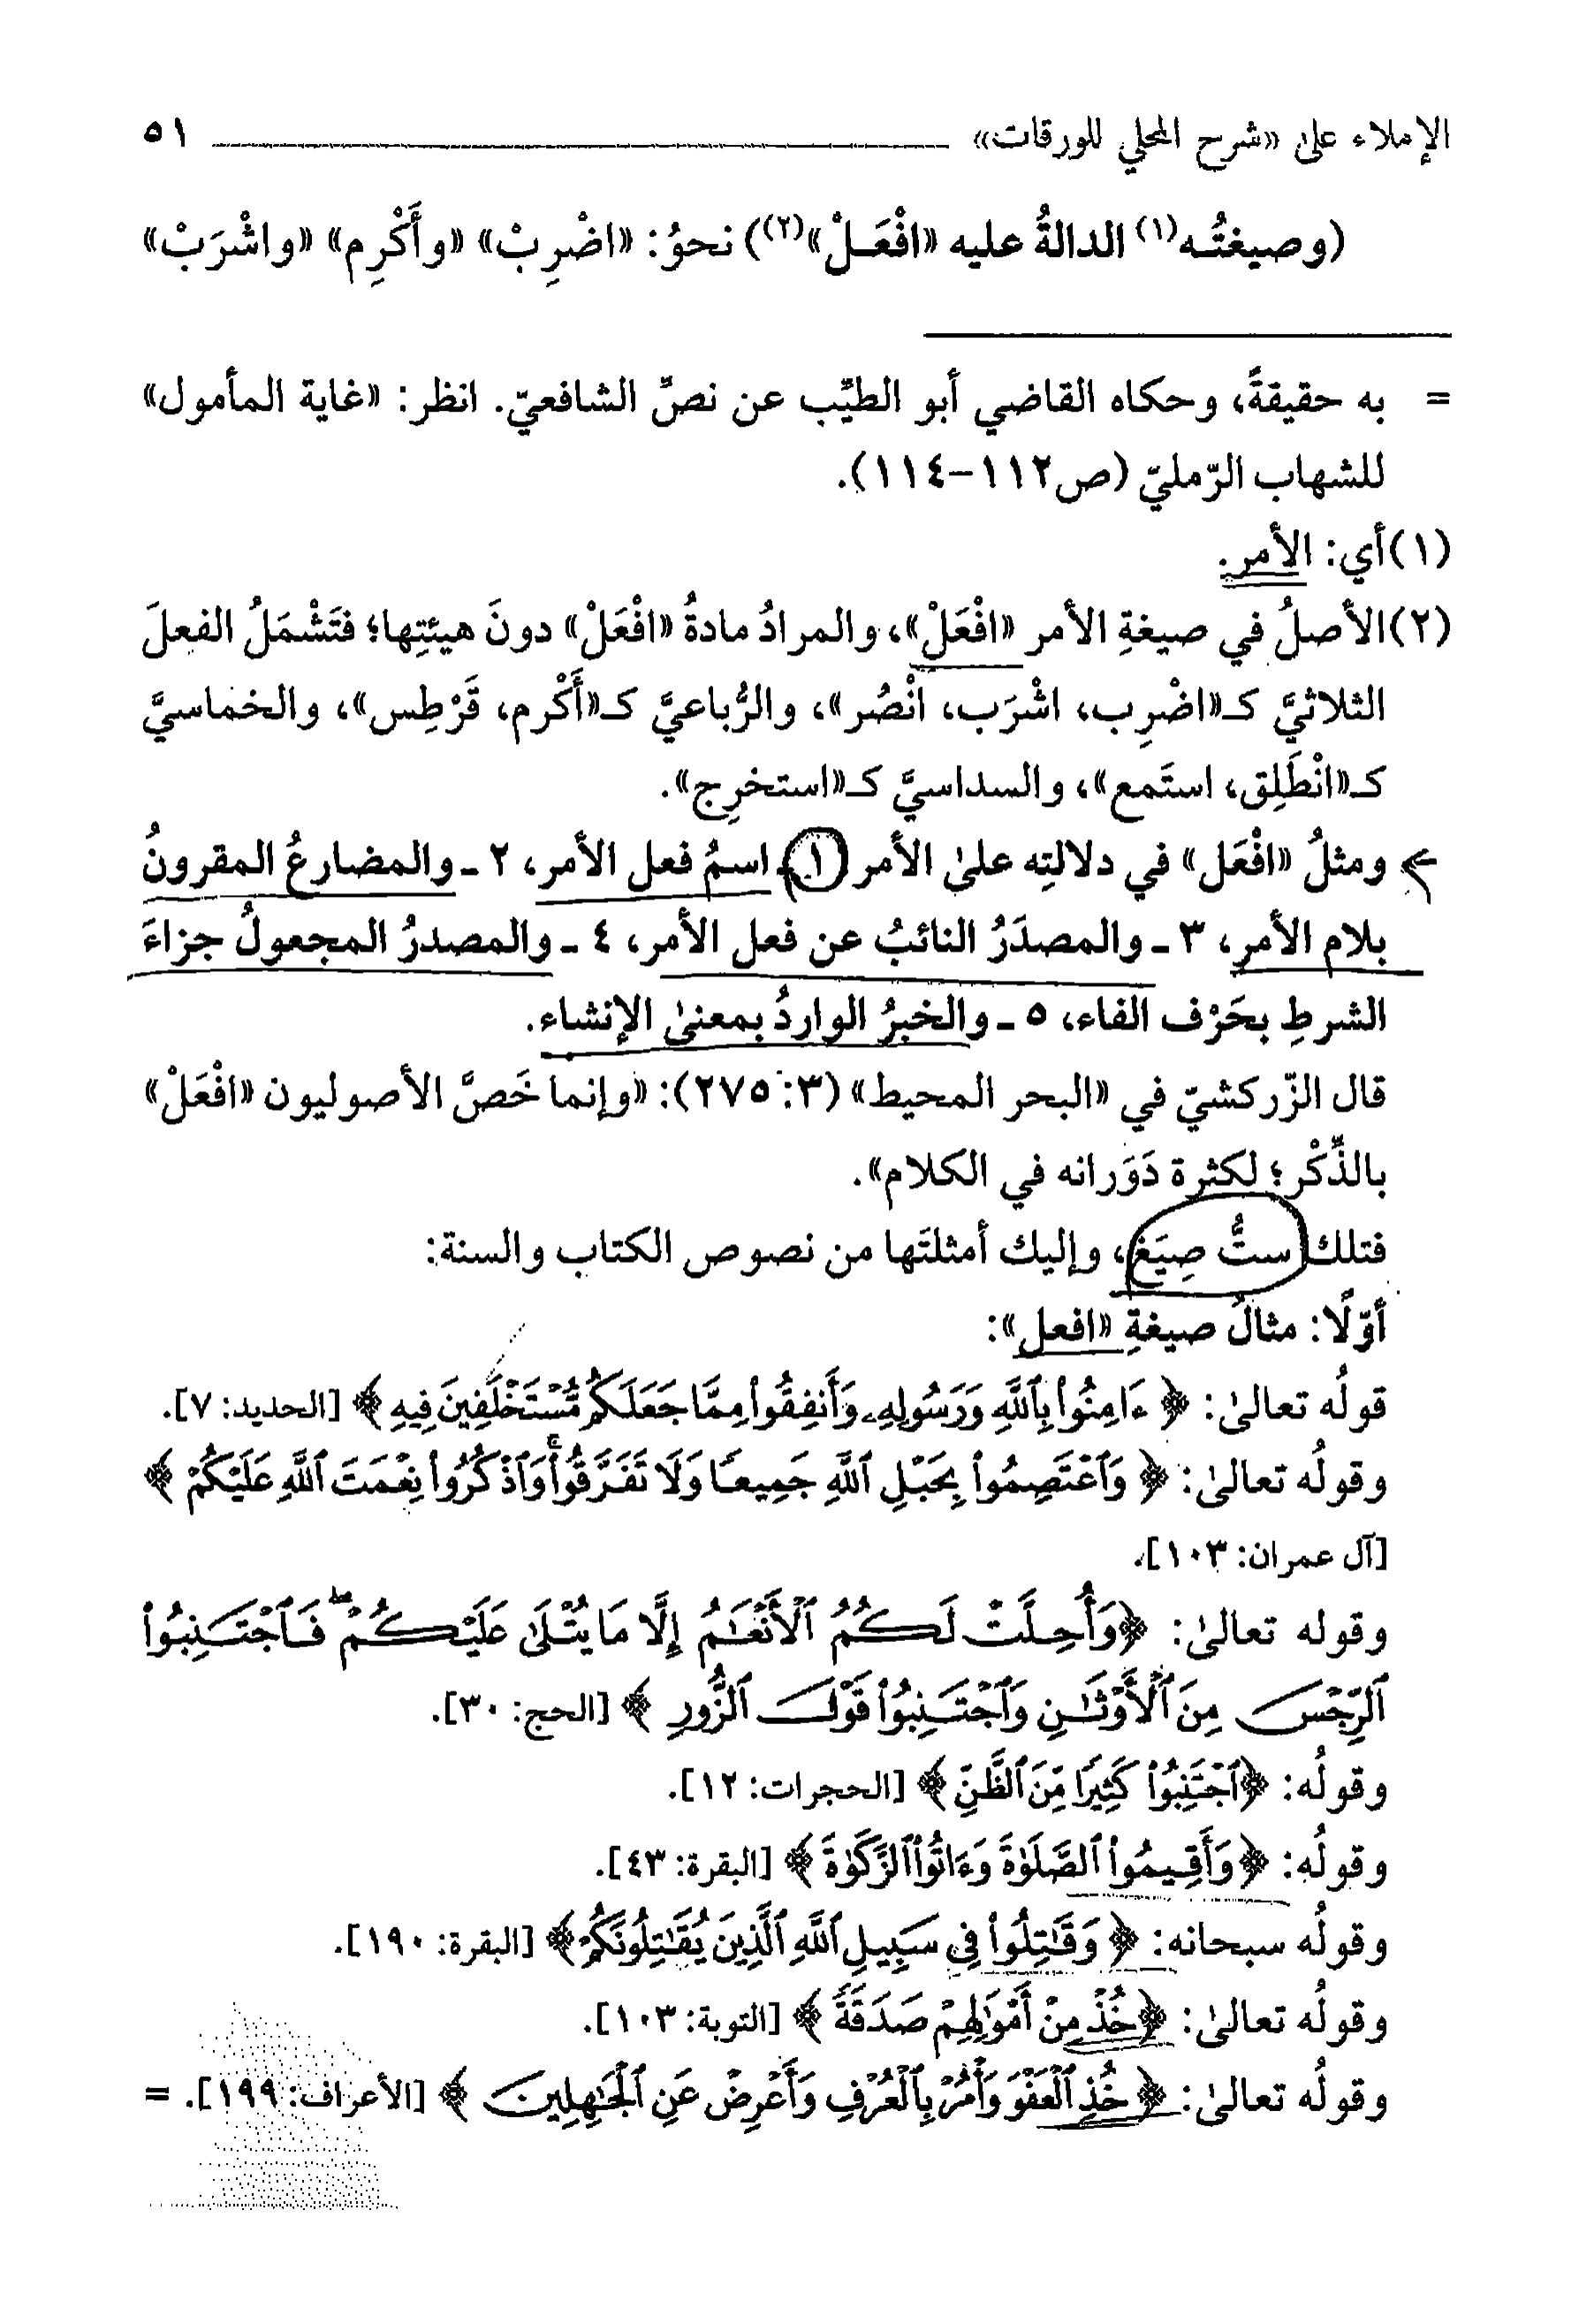 الإملاء على «شرح المحلي للورقات» ٥١
(وصيغتُه(١) الدالةُ عليه «افْعَلْ»(٢)) نحوُ: «اضْرِبْ» «وأَكْرِم» «واشْرَبْ»
= به حقيقةً، وحكاه القاضي أبو الطيِّب عن نصِّ الشافعيّ. انظر: «غاية المأمول»
للشهاب الرّمليّ (ص١١٢-١١٤).
(١) أي: الأمر.
(٢) الأصلُ في صيغةِ الأمر «افْعَلْ»، والمرادُ مادةُ «افْعَلْ» دونَ هيئتِها؛ فتَشْمَلُ الفعلَ
الثلاثيَّ كـ«اضْرِب، اشْرَب، انْصُر»، والرُّباعيَّ كـ«أَكْرم، قَرْطِس»، والخماسيَّ
كـ«انْطَلِق، استَمع»، والسداسيَّ كـ«استخرِج».
ومثلُ «افْعَل» في دلالتِه علىٰ الأمر ١ـ اسمُ فعل الأمر، ٢ ـ والمضارعُ المقرونُ
بلام الأمر، ٣ ـ والمصدَرُ النائبُ عن فعل الأمر، ٤ ـ والمصدرُ المجعولُ جزاءَ
الشرطِ بحَرْف الفاء، ٥ ـ والخبرُ الواردُ بمعنىٰ الإنشاء.
قال الزّركشيّ في «البحر المحيط» (٣: ٢٧٥): «وإنما خَصَّ الأصوليون «افْعَلْ»
بالذِّكْر؛ لكثرة دَوَرانه في الكلام».
فتلك ستُّ صِيَغ، وإليك أمثلتَها من نصوص الكتاب والسنة:
أوّلًا: مثالُ صيغةِ «افعل»:
قولُه تعالىٰ: ﴿ ءَامِنُوا۟ بِٱللَّهِ وَرَسُولِهِۦ وَأَنفِقُوا۟ مِمَّا جَعَلَكُم مُّسْتَخْلَفِينَ فِيهِ ﴾ [الحديد: ٧].
وقولُه تعالىٰ: ﴿ وَٱعْتَصِمُوا۟ بِحَبْلِ ٱللَّهِ جَمِيعًا وَلَا تَفَرَّقُوا۟ۚ وَٱذْكُرُوا۟ نِعْمَتَ ٱللَّهِ عَلَيْكُمْ ﴾
[آل عمران: ١٠٣].
وقوله تعالىٰ: ﴿وَأُحِلَّتْ لَكُمُ ٱلْأَنْعَٰمُ إِلَّا مَا يُتْلَىٰ عَلَيْكُمْۖ فَٱجْتَنِبُوا۟
ٱلرِّجْسَ مِنَ ٱلْأَوْثَٰنِ وَٱجْتَنِبُوا۟ قَوْلَ ٱلزُّورِ ﴾ [الحج: ٣٠].
وقولُه: ﴿ٱجْتَنِبُوا۟ كَثِيرًا مِّنَ ٱلظَّنِّ ﴾ [الحجرات: ١٢].
وقولُه: ﴿وَأَقِيمُوا۟ ٱلصَّلَوٰةَ وَءَاتُوا۟ ٱلزَّكَوٰةَ ﴾ [البقرة: ٤٣].
وقولُه سبحانه: ﴿ وَقَٰتِلُوا۟ فِى سَبِيلِ ٱللَّهِ ٱلَّذِينَ يُقَٰتِلُونَكُمْ ﴾ [البقرة: ١٩٠].
وقولُه تعالىٰ: ﴿خُذْ مِنْ أَمْوَٰلِهِمْ صَدَقَةً ﴾ [التوبة: ١٠٣].
وقولُه تعالىٰ: ﴿ خُذِ ٱلْعَفْوَ وَأْمُرْ بِٱلْعُرْفِ وَأَعْرِضْ عَنِ ٱلْجَٰهِلِينَ ﴾ [الأعراف: ١٩٩]. =